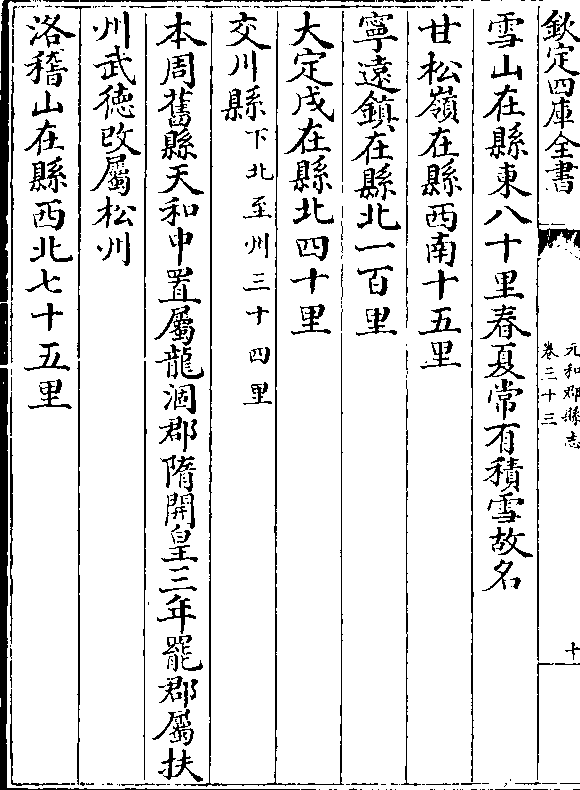 欽定四庫全書
元和郡縣志
卷三十三
十
雪山在縣東八十里春夏常有積雪故名
甘松嶺在縣西南十五里
寧遠鎮在縣北一百里
大定戍在縣北四十里
交川縣下北至州三十四里
本周舊縣天和中置屬龍涸郡隋開皇三年罷郡屬扶
州武德改屬松州
洛稽山在縣西北七十五里